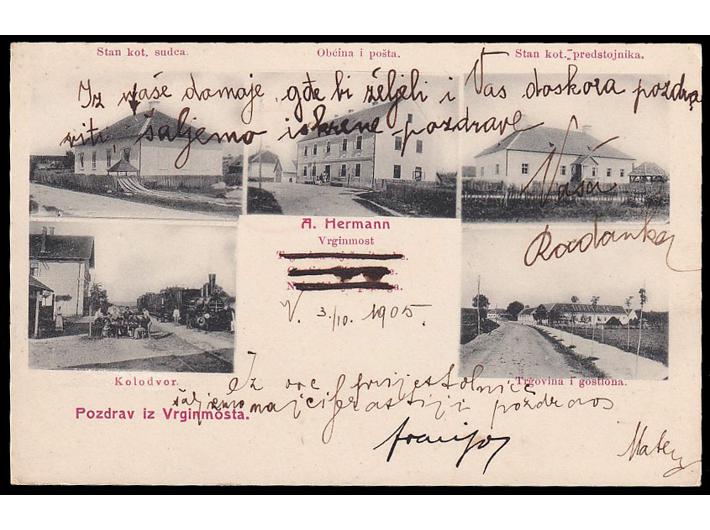 Stan kot. sudca.
Obćina i pošta.
Stan kot. predstojnika.
Iz vaše domaje, gđe bi željeli i Vas doskora pozdra
viti, šaljemo iskrene pozdrave
Vaša
Radanka
A. Hermann
Vrginmost
V. 3./10. 1905.
Kolodvor.
Trgovina i gostiona.
Iz ove prijestolnice
šaljemo najčistiji pozdrav
Pozdrav iz Vrginmosta.
Franjo
Matey